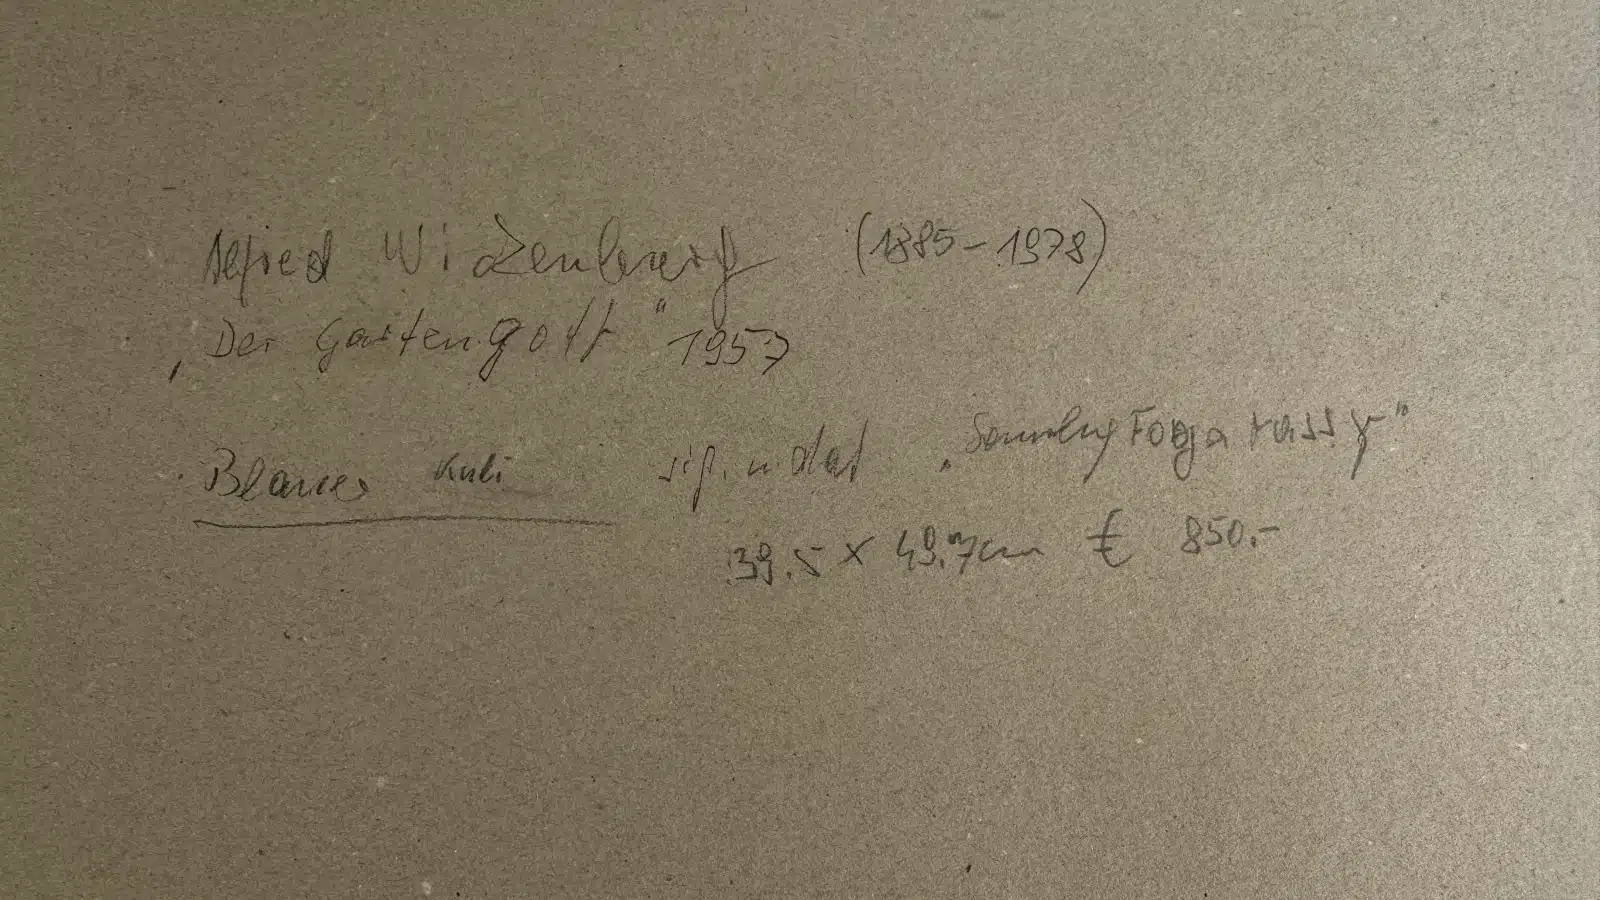 Alfred Wickenburg (1885-1978)
„Der Gartengott" 1957
Blauer Kuli sig. u dat „Sammlung Fogarassy"
39.5 x 49.7cm € 850.-